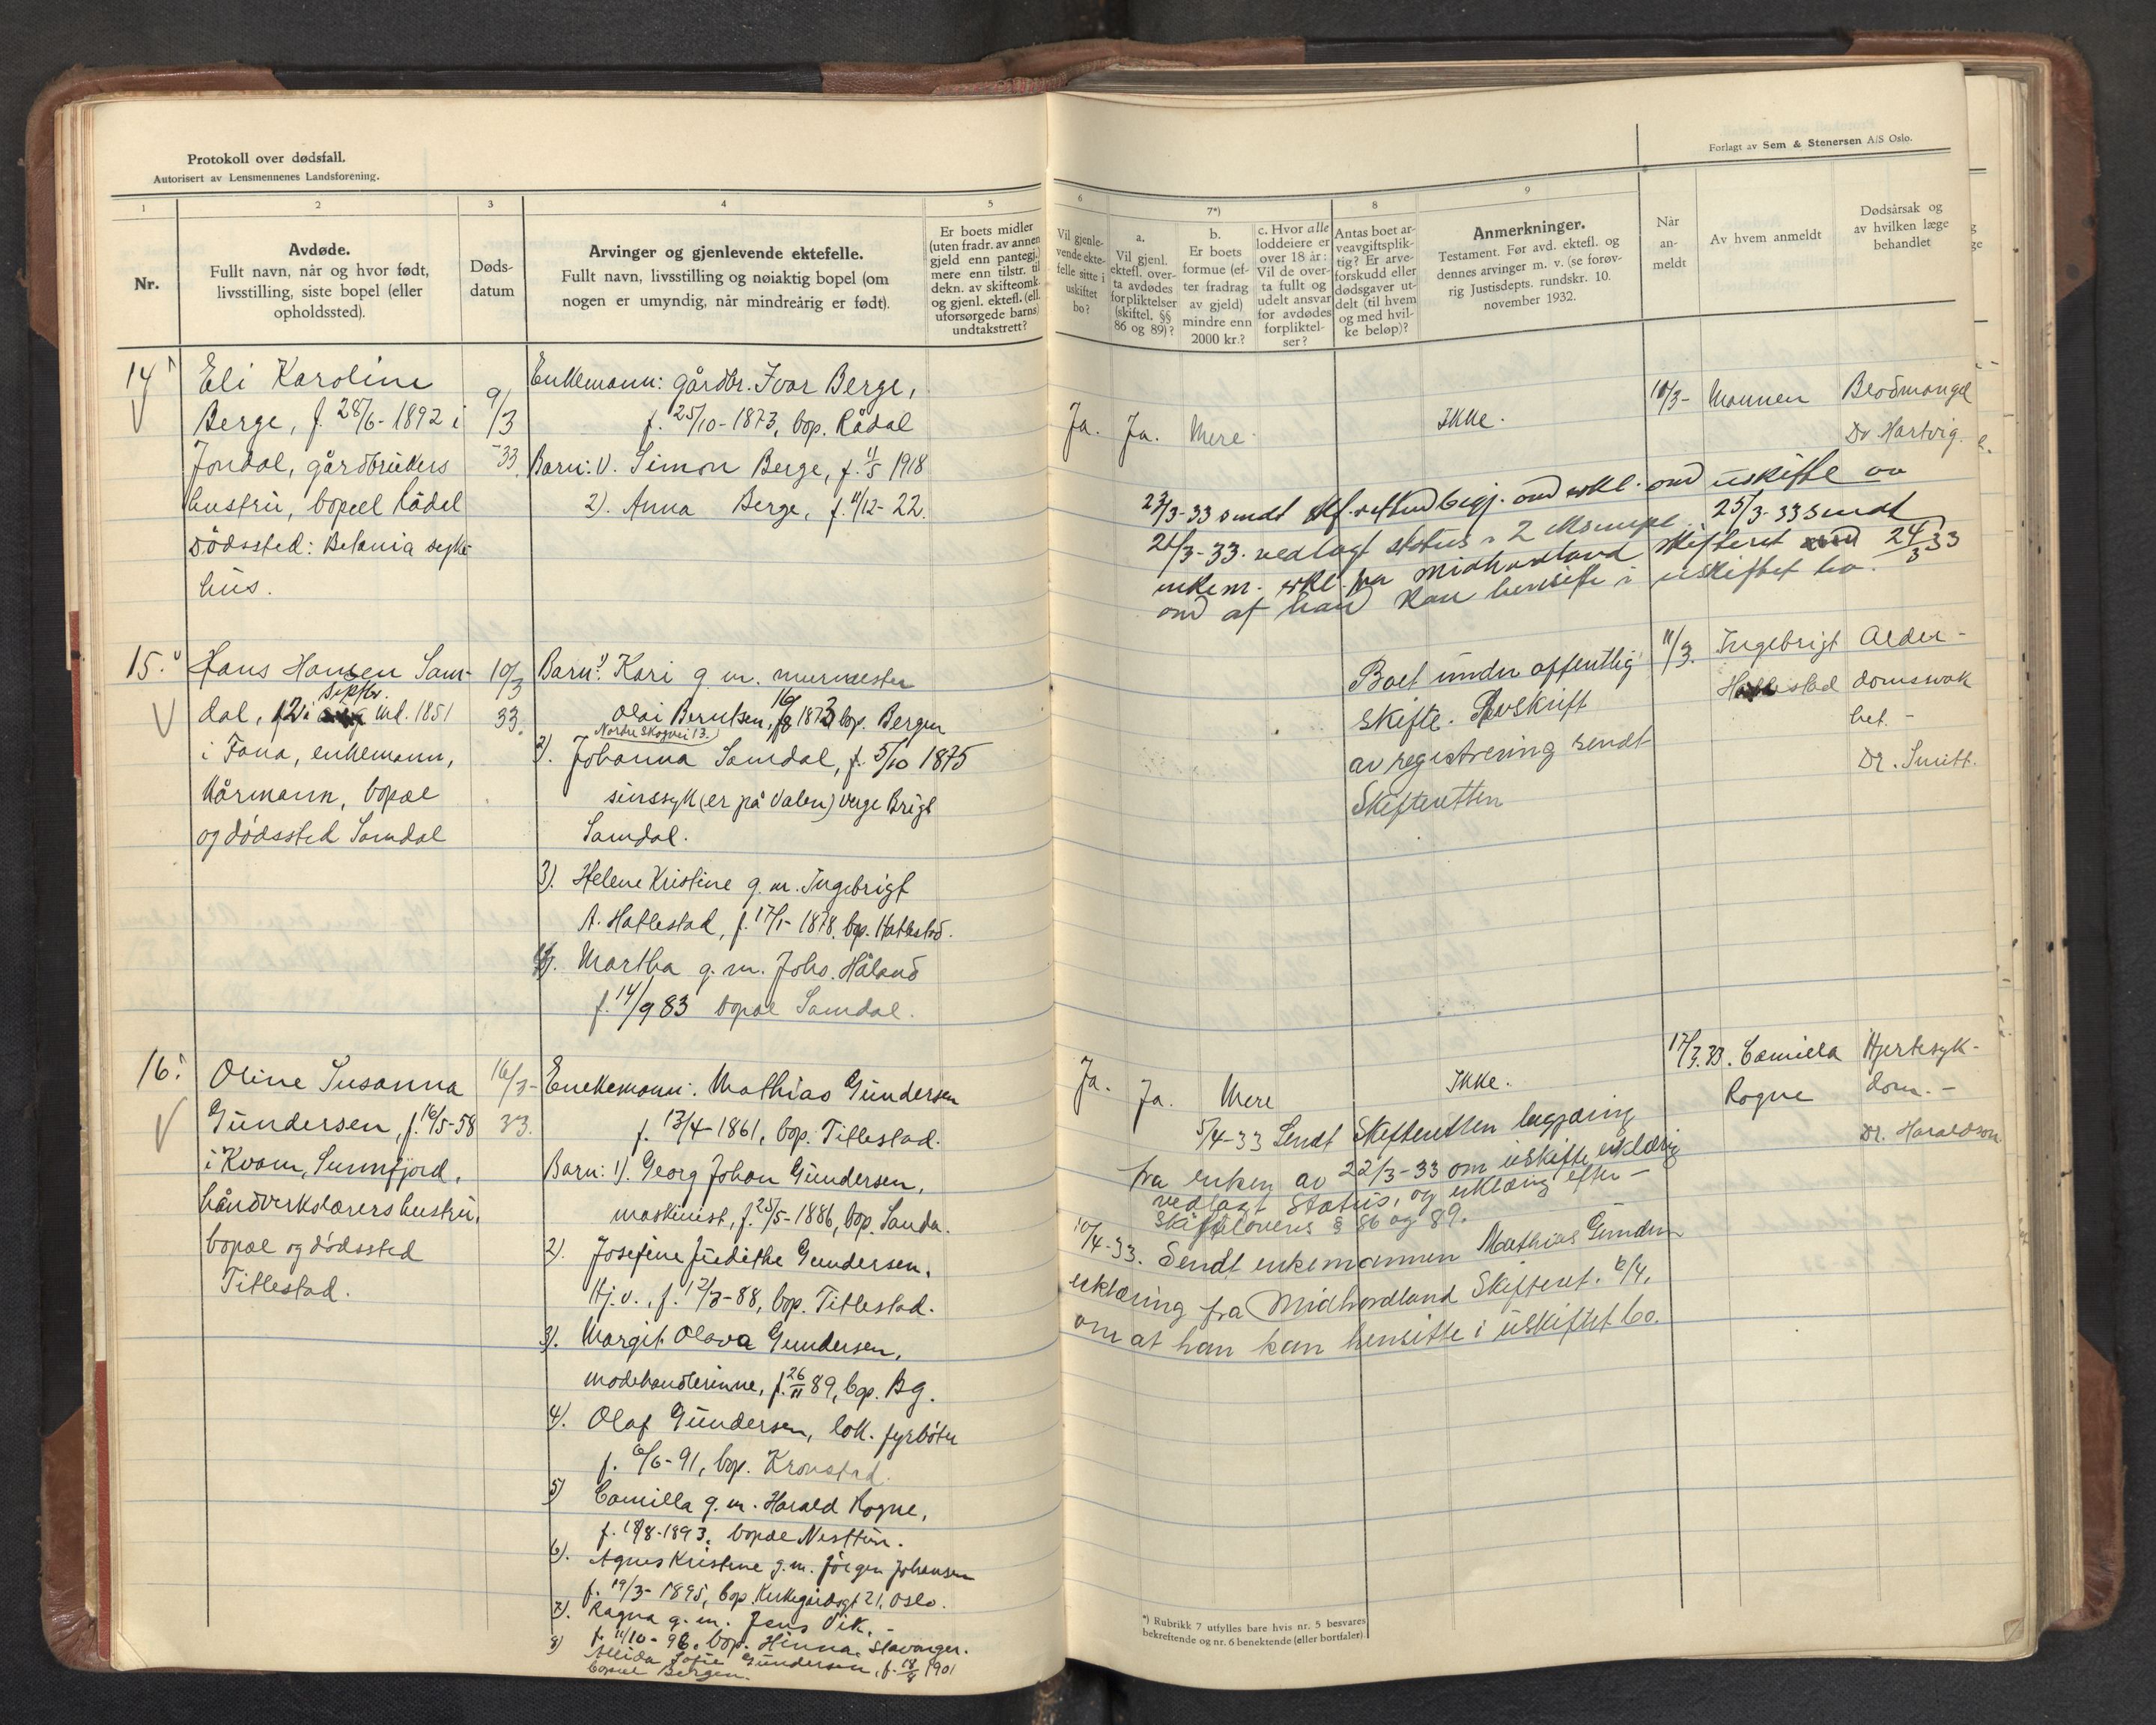 Protokoll over dødsfall.
Autorisert av Lensmennenes Landsforening.
Forlagt av Sem & Stenersen A/S Oslo.
1
2
3
4
5
6
7*)
8
9
Nr.
Avdøde.
Fullt navn, når og hvor født,
livsstilling, siste bopel (eller
opholdssted).
Døds-
datum
Arvinger og gjenlevende ektefelle.
Fullt navn, livsstilling og nøiaktig bopel (om
nogen er umyndig, når mindreårig er født).
Er boets midler
(uten fradr. av annen
gjeld enn pantegj.)
mere enn tilstr. til
dekn. av skifteomk.
og gjenl. ektef. (ell.
uforsørgede barns)
undtakstrett?
Vil gjenle-
vende ekte-
felle sitte i
uskiftet
bo?
a.
Vil gjenl.
ektefl. over-
ta avdødes
forpliktelser
(skiftel. §§
86 og 89)?
b.
Er boets
formue (ef-
ter fradrag
av gjeld)
mindre enn
2000 kr.?
c. Hvor alle
loddeiere er
over 18 år:
Vil de over-
ta fullt og
udelt ansvar
for avdødes
forpliktel-
ser?
Antas boet ar-
veavgiftsplik-
tig? Er arve-
forskudd eller
dødsgaver ut-
delt (til hvem
og med hvil-
ke beløp)?
Anmerkninger.
Testament. Før avd. ektefl. og
dennes arvinger m. v. (se forøv-
rig Justisdepts. rundskr. 10.
november 1932.
Når
an-
meldt
Av hvem anmeldt
Dødsårsak og
av hvilken læge
behandlet
14
Eli Karoline
Berge, f. 28/6-1892 i
Jondal, gårdbrukers
hustru, bopel Rådal
Dödssted: Betania syke-
hus.
9/3
-33
Enkemann: gårdbr. Ivar Berge,
f. 25/10-1873, bop. Rådal
Barn: 1). Simon Berge, f. 11/5 1918
2). Anna Berge, f. 11/12-22.
Ja.
Ja.
Mere.
Ikke.
10/3-
Mannen
Blodmangel
Dr Hartvig.
23/3-33 sendt begj. om erkl. om uskifte av
21/3-33. vedlagt status 2 25/3-33 sendt
enkem. erkl. fra Midhordland skifteret 24/3 33
om at han kan hensitte i uskiftet bo.
15.
Hans Hansen Sam-
septbr.
dal, f. 2 i md. 1851
i Fana, enkemann,
kårmann, bopæl
og dödssted Samdal
10/3
33.
Barn: 1) Kari g. m. murmester
Olai Berntsen, f. 1873 bop. Bergen
Nordre Skogvei 13.
2). Johanna Samdal, f. 5/10 1875
sinssyk (er på Valen) verge Brigt
Samdal.
3). Helene Kristine g. m. Ingebrigt
A. Hatlestad, f. 17/1-1878, bop. Hatlestad.
4). Martha g. m. Johs. Håland
f. 14/9 83 bopæl Samdal.
Boet under offentlig
skifte. Avskrift
av registrering sendt
Skifteretten
11/3.
Ingebrigt
Hatlestad
Alder-
domssvak
het. -
Dr. Smitt.
16.
Oline Susanna
Gundersen, f. 16/5-58
i Kvam, Sunnfjord,
håndverkslærers hustru,
bopæl og dödssted
Titlestad.
16/3-
33.
Enkemann: Mathias Gundersen
f. 13/4-1861, bop. Titlestad.
Barn: 1). Georg Johan Gundersen,
maskinist, f. 25/5-1886, bop. Sauda.
2). Josefine Judithe Gundersen,
Hj. v., f. 12/3-88, bop. Titlestad.
3). Margit Olava Gundersen,
modehandlerinne, f. 26/11 89, bop. Bg.
4). Olaf Gundersen, lok. fyrböter
f. 6/6-91, bop. Kronstad.
5) Camilla g. m. Harald Rogne,
f. 18/8-1893, bopæl Nesttun.
6). Agnes Kristine g. m. Jörgen Johansen
f. 19/3-1895, bop. Kirkegårdsgt 21, Oslo.
7). Ragna g. m. Jens Vik. -
f. 11/10-96, bop. Hinna, Stavanger.
8) Alida Sofie Gundersen, f. 18/8 1901
bopæl Bergen.
Ja.
Ja.
Mere
Ikke.
17/3.33.
Camilla
Rogne
Hjertesyk-
dom. -
Dr. Haraldson
5/4-33 Sendt Skifteretten begjæring
fra enken av 22/3-33 om uskifte erklæring
vedlagt Status, og erklæring efter
Skiftelovens § 86 og 89.
10/4-33. Sendt enkemannen Mathias Gundersen
erklæring fra Midhordland Skifteret. 6/4.
om at han kan hensitte i uskiftet bo.
*) Rubrikk 7 utfylles bare hvis nr. 5 besvares
bekreftende og nr. 6 benektende (eller bortfaller)